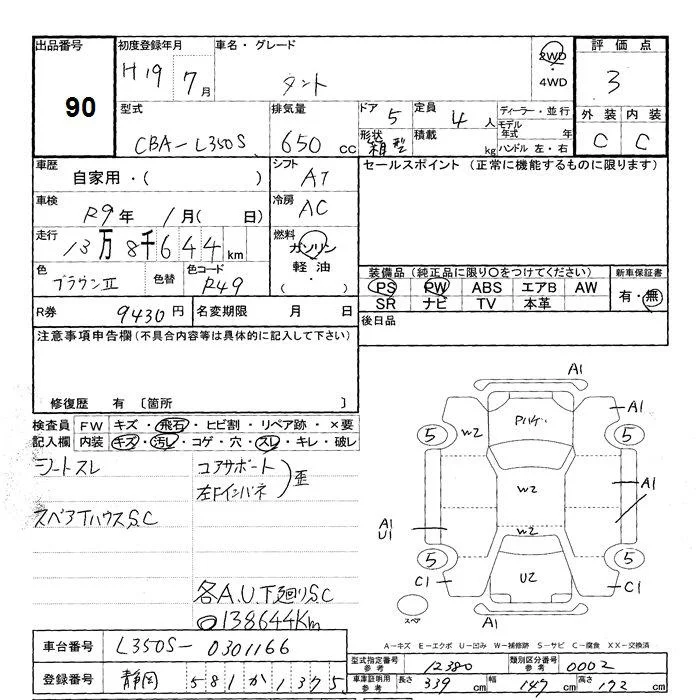 出品番号 初度登録年月 車名・グレード 2WD 4WD 評価点
90 H19 7月 タント 3
型式 排気量 ドア 5 定員 4人 ディーラー・並行 外装 内装
CBA-L350S 650cc 形状 箱型 積載 kg モデル年式 年 ハンドル 左・右 C C
車歴 自家用・( ) シフト AT セールスポイント (正常に機能するものに限ります)
車検 R9年 1月( 日) 冷房 AC
走行 13万8千644km 燃料 ガソリン 軽油・( )
色 ブラウンⅡ 色替 色コード R49 装備品(純正品に限り○をつけてください) 新車保証書
PS PW ABS エアB AW 有・無
SR ナビ TV 本革
R券 9430円 名変期限 月 日 後日品
注意事項申告欄(不具合内容等は具体的に記入して下さい)
修復歴 有 〔箇所 〕
検査員 FW キズ・飛石・ヒビ割・リペア跡・×要
記入欄 内装 キズ・汚レ・コゲ・穴・スレ・キレ・破レ
シートスレ コアサポート
左Fインパネ 歪
スペアTハウスS.C
各A.U.下廻りS.C
○138644Km
A1
A1
W2
5 5
W2
A1
A1
U1
W2
5 5
C1 U2 C1
スペア A1
A-キズ E-エクボ U-凹み W-補修跡 S-サビ C-腐食 XX-交換済
車台番号 L350S-0301166 型式指定番号 参考 12380 類別区分番号 参考 0002
登録番号 静岡 581か1375 車庫証明用 参考 長さ 339cm 幅 147cm 高さ 172cm